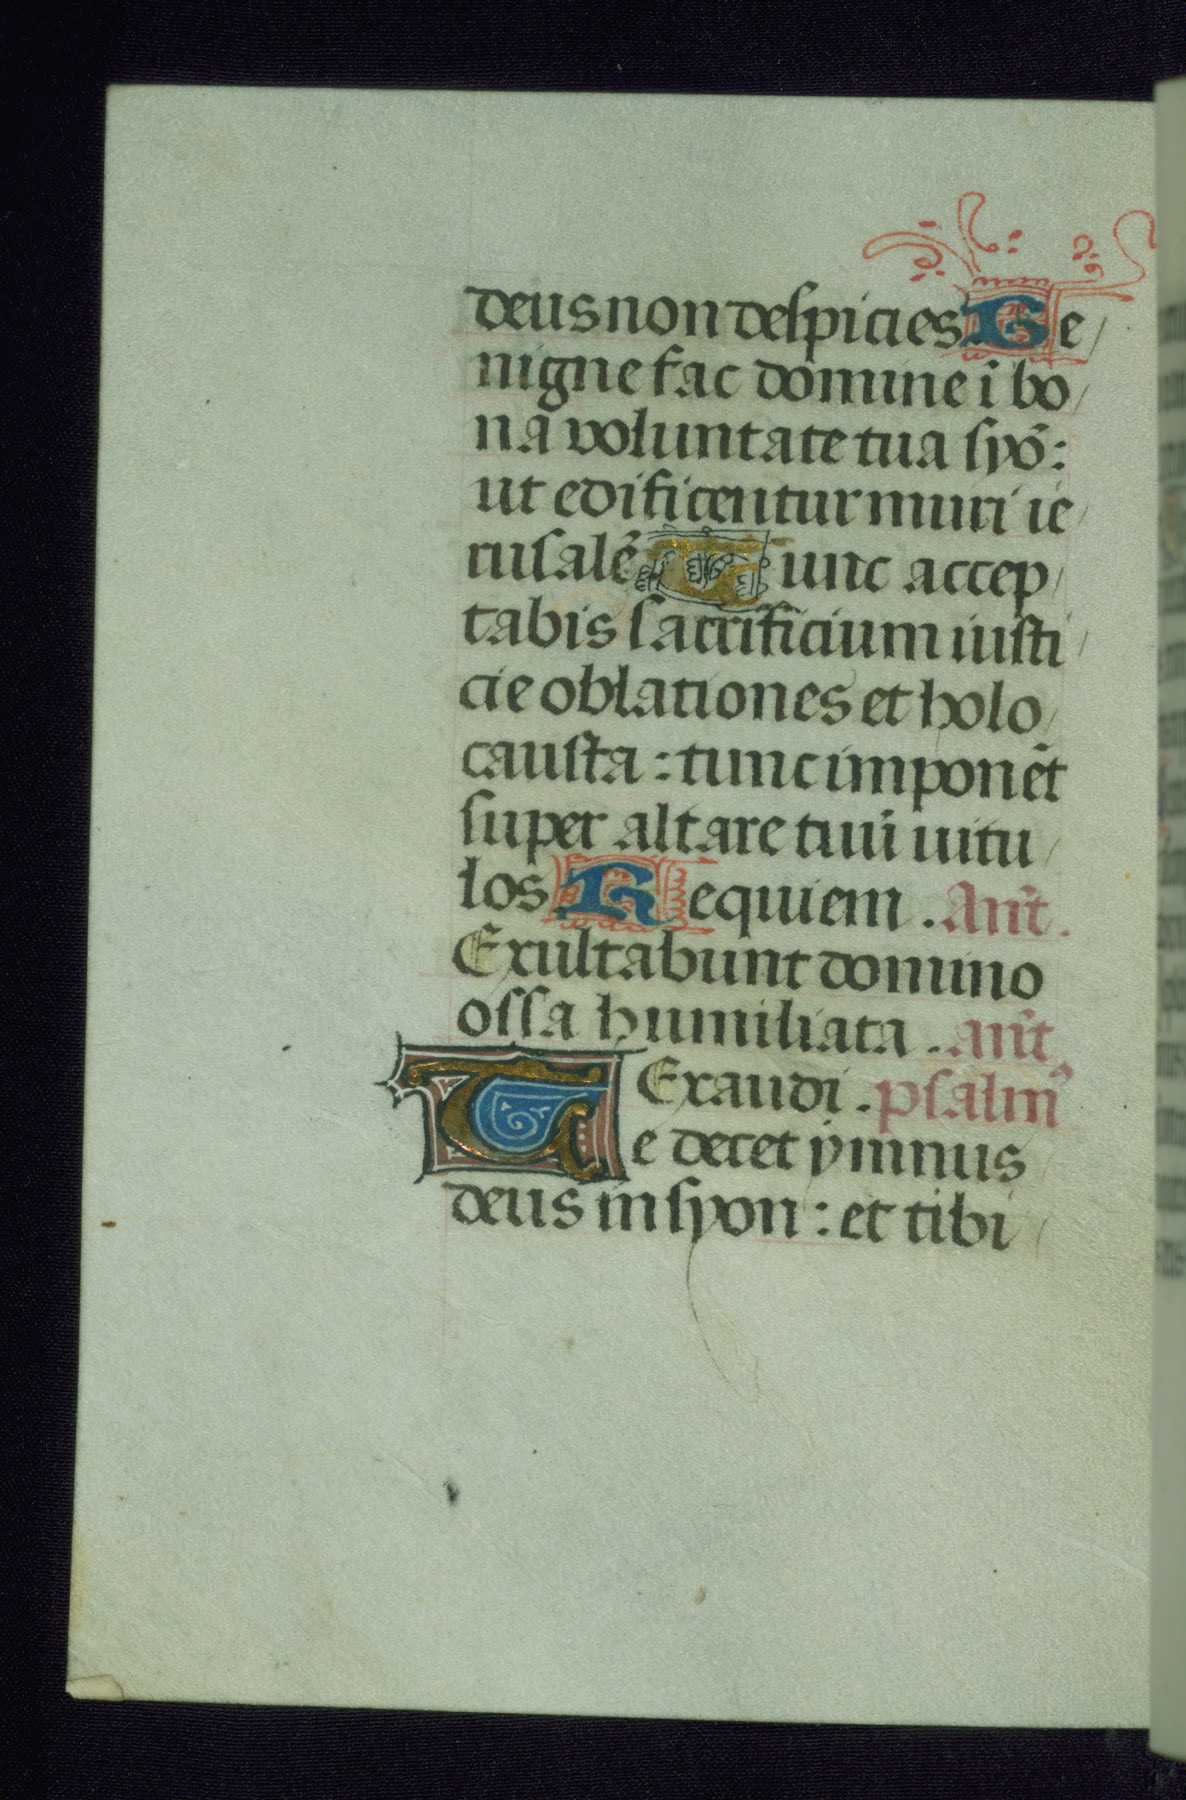 deus non despicies Be
nigne fac domine ī bo
nā voluntate tua syō:
ut edificentur muri ie
rusalē Tunc accep
tabis sacrificium iusti
cie oblationes et holo
causta: tunc imponēt
super altare tuū uitu
los Requiem. Añt.
Exultabunt domino
ossa humiliata. añt
Exaudi. psalm⁹
Te decet ẏmnus
deus in syon: et tibi